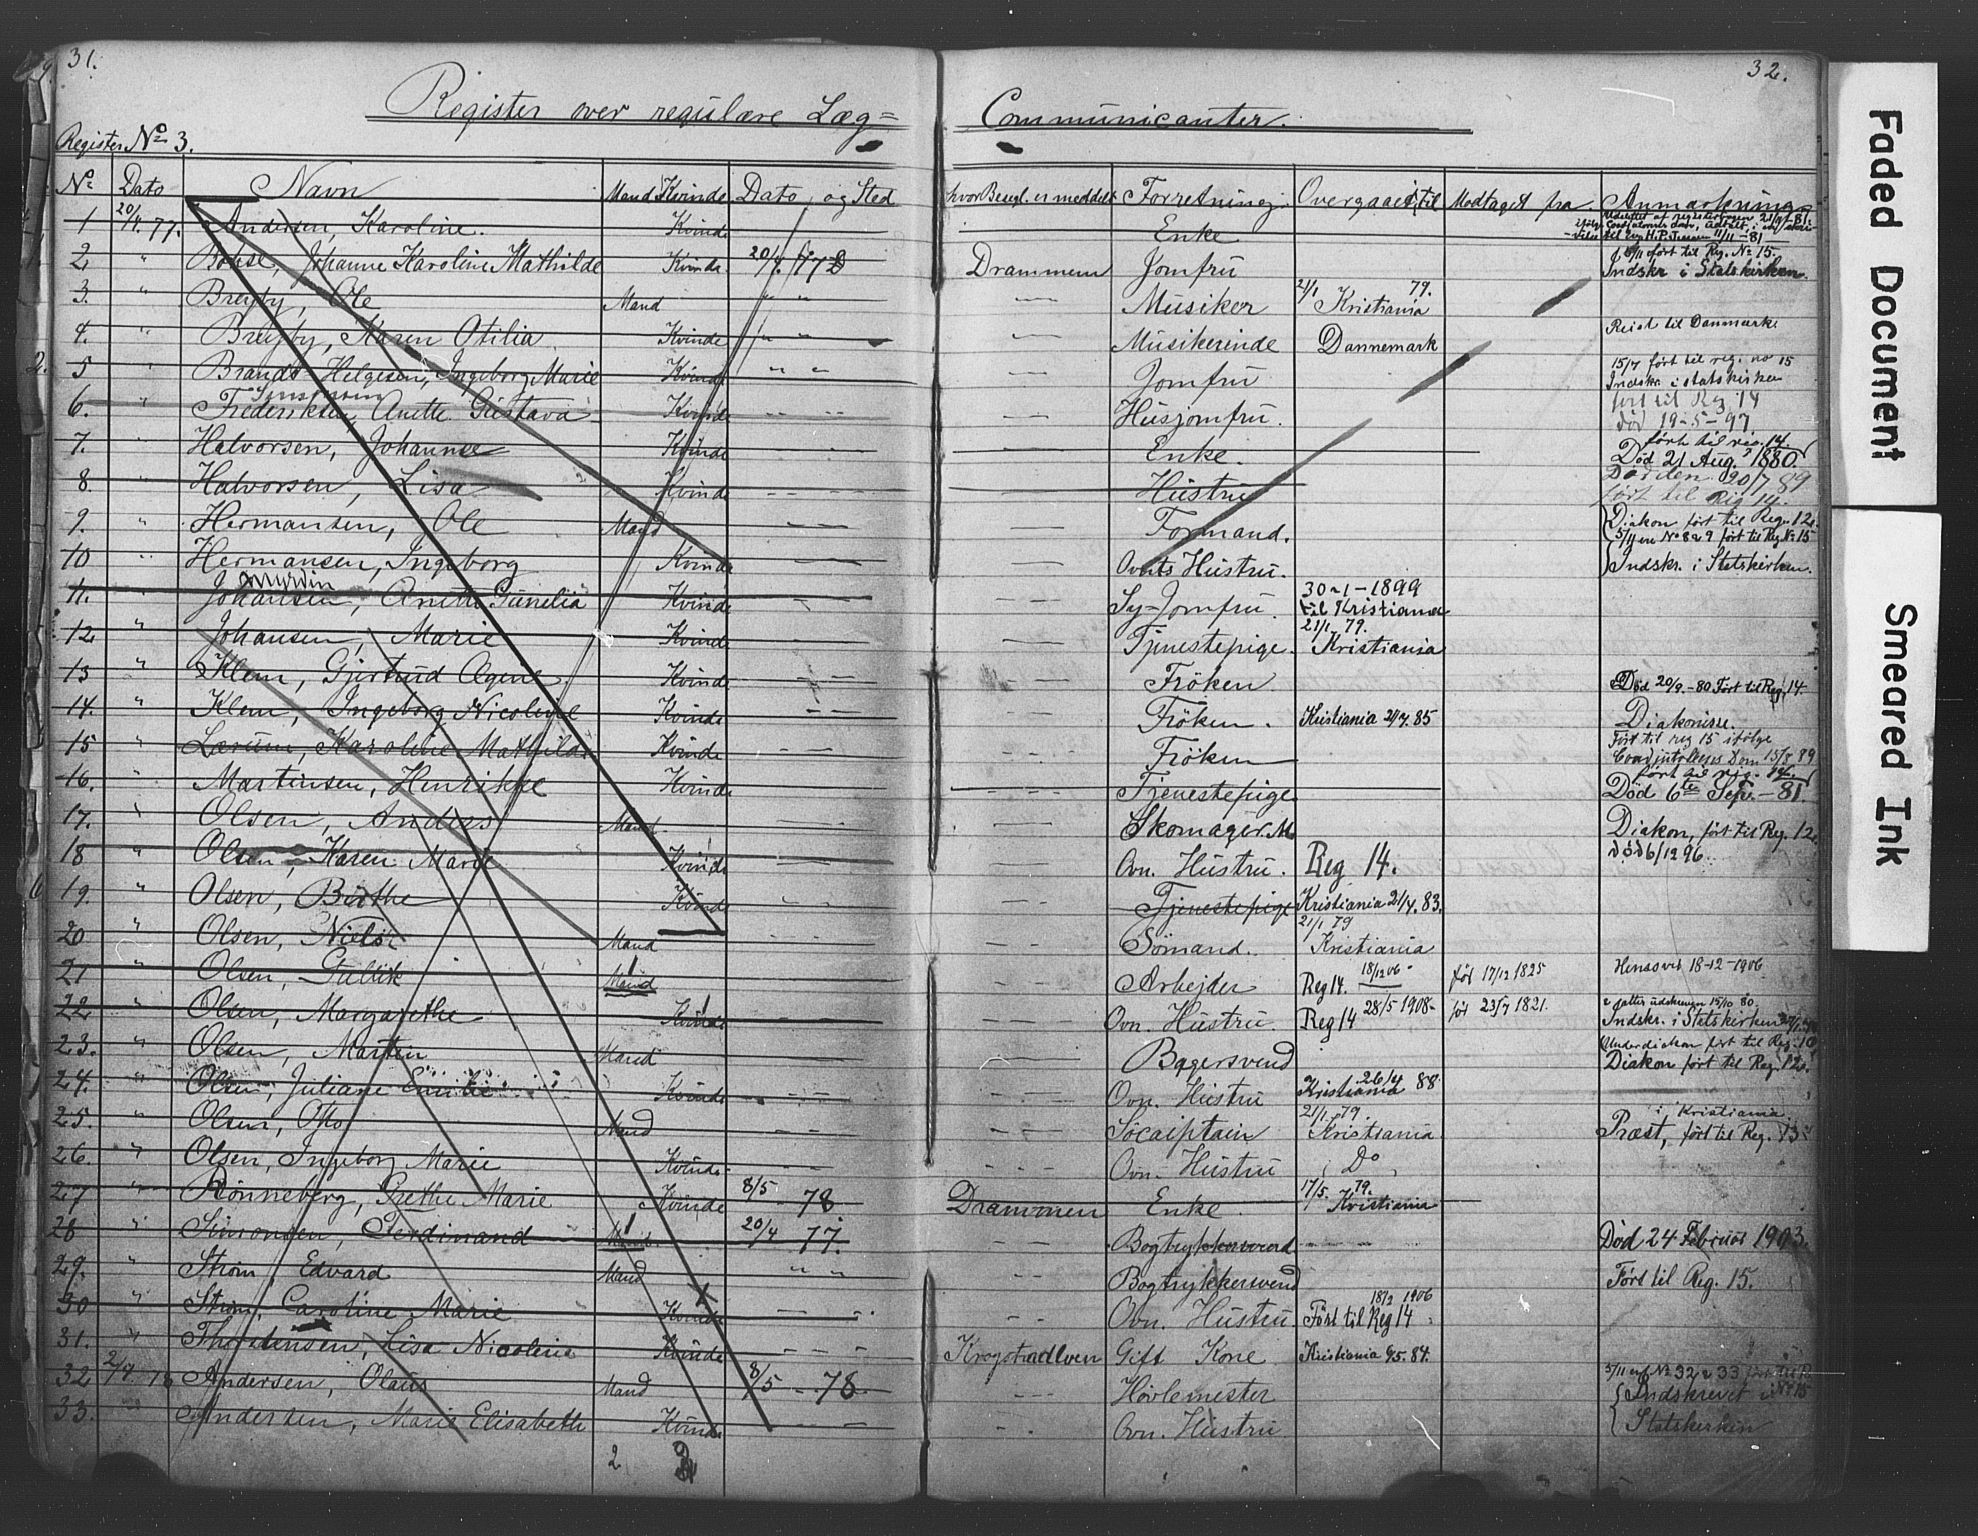 31.
32.
Register over regulære Læg=
Communicanter.
Register No 3.
No Dato Navn Mand Kvinde Dato og Sted hvor Besegl. er meddelt Forretning Overgaaet til Modtaget fra Anmærkning
1 20/4. 77. Andersen, Karoline. Kvinde Enke
2. " Bohse, Johanne Karoline Mathilde Kvinde 20/4. 77 Drammen Jomfru 5/11 ført til Reg. No 15. Indskr. i Statskirken.
3. " Breyby, Ole Mand " " Musiker 21/1 79. Kristiania
4. " Breyby, Karen Otilia Kvinde " " Musikerinde Dannemark Reist til Danmark
5 " Brandt Helgesen, Ingeborg Marie Kvinde " " Jomfru 15/7 ført til reg. no 15 Indskr. i statskirken
6. " Frederiksen, Anette Gustava Kvinde Husjomfru. ført til Reg 14 død 19-5-97
7. " Halvorsen, Johanne Kvinde Enke. ført til reg. 14. Død 21 Aug. 1880.
8. " Halvorsen, Lisa Kvinde Hustru Død den 20/7 89 ført til Reg 14.
9. " Hermansen, Ole Mand Formand. Diakon ført til Reg. 12. 5/11 ere No 8 & 9 ført til Reg No 15
10 " Hermansen, Ingeborg Kvinde Ovnts Hustru. Indskr. i Statskirken.
11. " Johansen, Anette Gunelia Kvinde Sy-Jomfru. 30-1-1899 til Kristiania
12. " Johansen, Marie Kvinde Tjenestepige. 21/1 79. Kristiania
13 " Klem, Gjertrud Agne. Kvinde Fröken. Død 20/9-80 Ført til Reg 14
14. " Klem, Ingeborg Nicoline Kvinde Fröken. Kristiania 21/7. 85 Diakonisse.
15 " Lærum, Karoline Mathilde Kvinde Fröken Ført til reg 15 ifølge Coadjutor Dom 15/8 89
16. " Martinsen, Henrikke Kvinde Tjenestepige ført til reg. 14. Død 6te Sept. -81.
17. " Olsen, Anders Mand. Skomager.M. Diakon, ført til Reg. 12.
18 " Olsen, Karen Marie Kvinde Ovn. Hustru. Reg 14. død 6/12 96.
19. " Olsen, Birthe Kvinde Tjenestepige Kristiania 21/7. 83.
20 " Olsen, Niels Mand Sömand. 21/1 79 Kristiania
21 " Olsen, Gullik Mand Arbejder Reg 14. 18/12 06 fød 17/12 1825 Hensovet 18-12-1906
22. " Olsen, Margarethe Kvinde Ovn. Hustru. Reg 14 28/5 1908 fød 23/7 1821. Indskr. i Statskirken
23. " Olsen, Martin Mand Bagersvend Underdiakon ført til Reg. 10 Diakon ført til Reg. 12.
24. " Olsen, Juliane Emilie Kvinde Ovn. Hustru 26/4 88 Kristiania
25. " Olsen, Otto Mand Söcaiptain 21/1 79. Kristiania. i Kristiania. Præst, ført til Reg. 13
26. " Olsen, Ingeborg Marie Kvinde Ovn. Hustru Do
27 " Rönneberg, Grethe Marie Kvinde 8/5 78 Drammen Enke. 17/5. 79. Kristiania
28 " Simonsen, Ferdinand Mand 20/4 77. Bogtrykkersvend Död 24 Februar 1903.
29. " Strøm, Edvard Mand " " Bogtrykkersvend Ført til Reg. 15.
30 " Strøm, Caroline Marie Kvinde Ovn. Hustru. 18/2 1906 Ført til Reg 14
31. " Thorstensen, Lisa Nicoline Kvinde Krogstadelven Gift Kone Kristiania 9/5. 84.
32 2/4 78 Andersen, Olaus Mand 8/5 78. Hövlemester 5/11 No 32 & 33 ført til R No 15 Indskrevet i
33. Andersen, Marie Elisabeth Kvinde Ovn. Hustru Statskirken
2
Faded Document
Smeared Ink